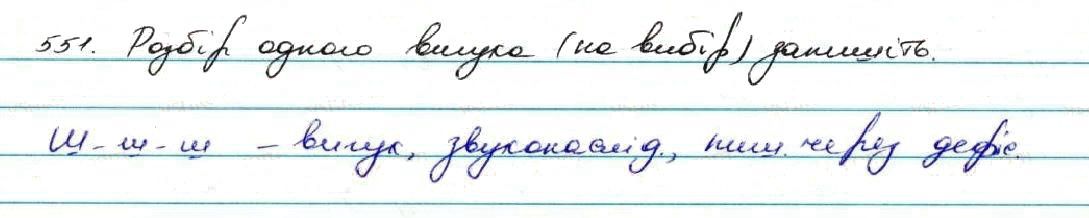 551. Розбір одного вигука (на вибір) запишіть.
Ш-ш-ш – вигук, звуконаслід., пиш. через дефіс.